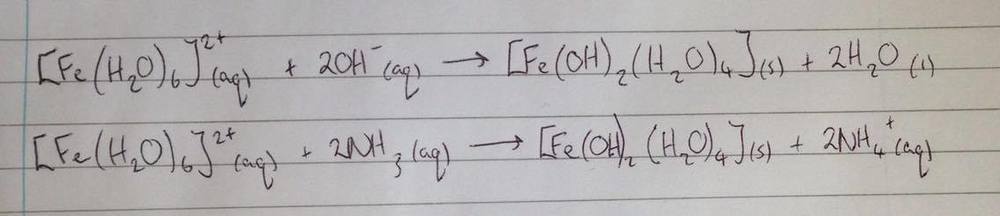 [Fe(H₂O)₆]²⁺(aq) + 2OH⁻(aq) → [Fe(OH)₂(H₂O)₄](s) + 2H₂O(l)
[Fe(H₂O)₆]²⁺(aq) + 2NH₃(aq) → [Fe(OH)₂(H₂O)₄](s) + 2NH₄⁺(aq)